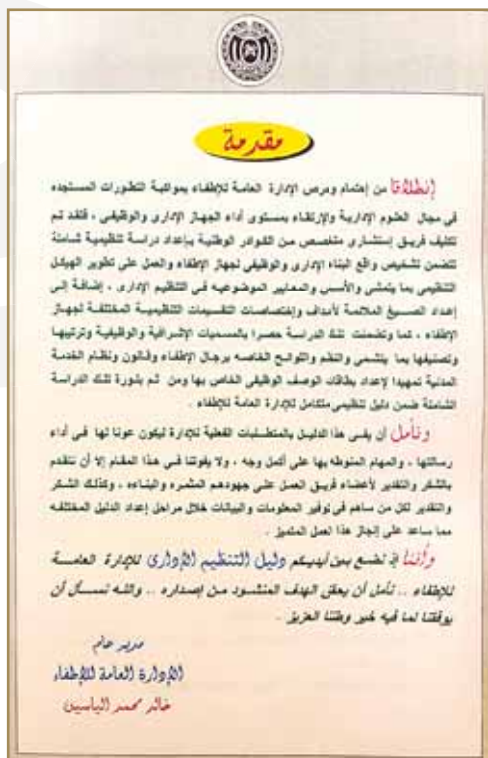 مقدمة
إنطلاقا من إهتمام وحرص الإدارة العامة للإطفاء بمواكبة التطورات المستجده
في مجال العلوم الإدارية والإرتقاء بمستوى أداء الجهاز الإداري والوظيفي ، فلقد تم
تكليف فريق إستشاري متخصص من الكوادر الوطنية بإعداد دراسة تنظيمية شاملة
تتضمن تشخيص واقع البناء الإداري والوظيفي لجهاز الإطفاء والعمل على تطوير الهيكل
التنظيمي بما يتمشى والأسس والمعايير الموضوعيه في التنظيم الإداري ، إضافة إلى
إعداد الصيغ الملائمة لأهداف وإختصاصات التقسيمات التنظيمية المختلفة لجهاز
الإطفاء ، كما وتضمنت تلك الدراسة حصرا بالمسميات الإشرافية والوظيفية وترتيبها
وتصنيفها بما يتمشى والنظم واللوائح الخاصه برجال الإطفاء وقانون ونظام الخدمة
المدنية تمهيدا لإعداد بطاقات الوصف الوظيفي الخاص بها ومن ثم بلورة تلك الدراسة
الشاملة ضمن دليل تنظيمي متكامل للإدارة العامة للإطفاء .
ونأمل أن يفى هذا الدليل بالمتطلبات الفعلية للإدارة ليكون عونا لها في أداء
رسالتها ، والمهام المنوطه بها على أكمل وجه ، ولا يفوتنا في هذا المقام إلا أن نتقدم
بالشكر والتقدير لأعضاء فريق العمل على جهودهم المثمره والبناءه ، وكذلك الشكر
والتقدير لكل من ساهم في توفير المعلومات والبيانات خلال مراحل إعداد الدليل المختلفه
مما ساعد على إنجاز هذا العمل المتميز .
وأننا إذ نضع بين أيديكم دليل التنظيم الإداري للإدارة العامة
للإطفاء .. نأمل أن يحقق الهدف المنشود من إصداره .. والله نسأل أن
يوفقنا لما فيه خير وطننا العزيز .
مدير عام
الإدارة العامة للإطفاء
خالد محمد الياسين